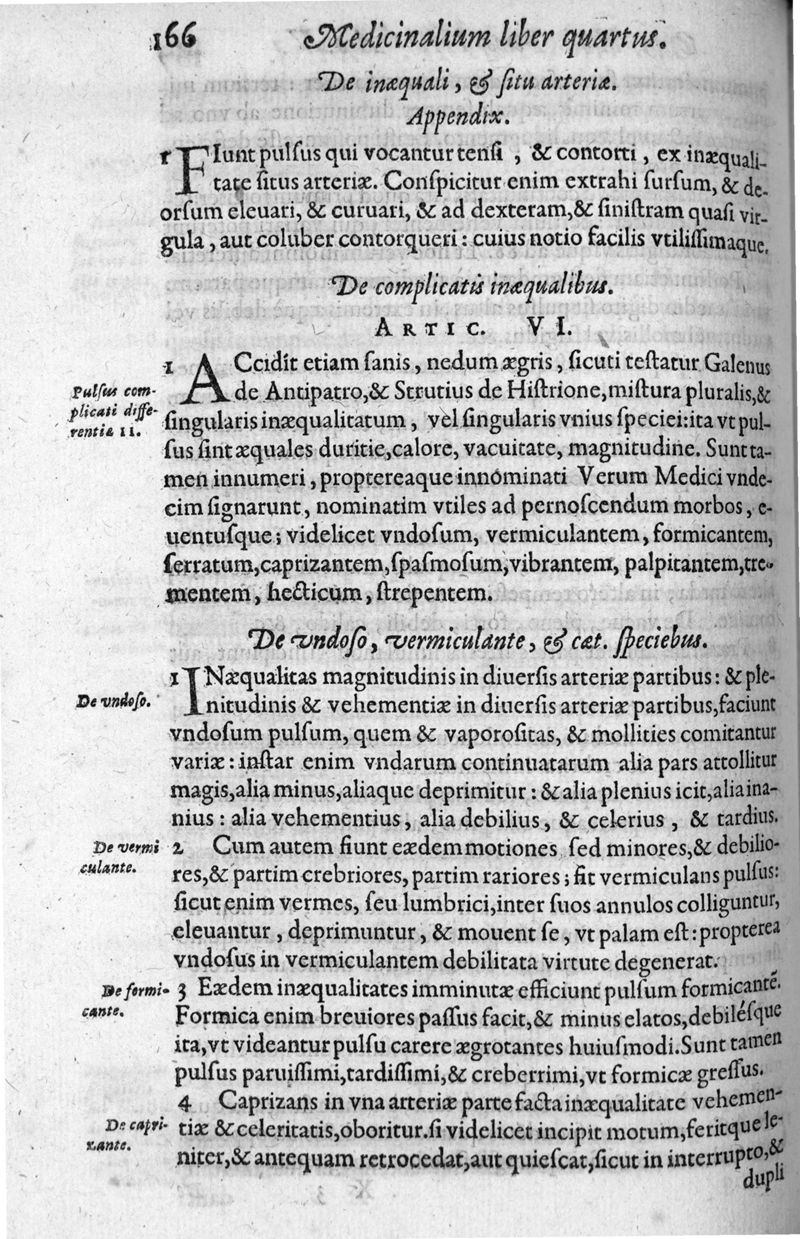 166 Medicinalium liber quartus.
De inæquali, & ſitu arteriæ.
Appendix.
1 FIunt pulſus qui vocantur tenſi , & contorti , ex inæquali-
tate ſitus arteriæ. Conſpicitur enim extrahi ſurſum, & de-
orſum eleuari, & curuari, & ad dexteram, & ſiniſtram quaſi vir-
gula , aut coluber contorqueri : cuius notio facilis vtiliſſimaque.
De complicatis inæqualibus.
ARTIC. VI.
1 ACcidit etiam ſanis , nedum ægris , ſicuti teſtatur Galenus
Pulſus com-
plicati diffe-
rentiæ 11.
de Antipatro,& Strutius de Hiſtrione,miſtura pluralis,&
ſingularis inæqualitatum , vel ſingularis vnius ſpeciei:ita vt pul-
ſus ſint æquales duritie,calore, vacuitate, magnitudine. Sunt ta-
men innumeri , proptereaque innominati Verum Medici vnde-
cim ſignarunt, nominatim vtiles ad pernoſcendum morbos, e-
uentuſque ; videlicet vndoſum, vermiculantem, formicantem,
ſerratum,caprizantem,ſpaſmoſum,vibrantem, palpitantem,tre-
mentem , hecticum , ſtrepentem.
De vndoſo, vermiculante, & cæt. ſpeciebus.
1 INæqualitas magnitudinis in diuerſis arteriæ partibus : & ple-
De vndoſo.
nitudinis & vehementiæ in diuerſis arteriæ partibus,faciunt
vndoſum pulſum, quem & vaporoſitas, & mollities comitantur
variæ : inſtar enim vndarum continuatarum alia pars attollitur
magis,alia minus,aliaque deprimitur : & alia plenius icit,alia ina-
nius : alia vehementius, alia debilius, & celerius , & tardius.
De vermi
culante.
2 Cum autem fiunt eædem motiones ſed minores,& debilio-
res,& partim crebriores, partim rariores ; fit vermiculans pulſus:
ſicut enim vermes, ſeu lumbrici,inter ſuos annulos colliguntur,
eleuantur , deprimuntur , & mouent ſe , vt palam eſt : propterea
vndoſus in vermiculantem debilitata virtute degenerat.
De formi-
cante.
3 Eædem inæqualitates imminutæ efficiunt pulſum formicantē.
Formica enim breuiores paſſus facit,& minus elatos,debiléſque
ita,vt videantur pulſu carere ægrotantes huiuſmodi.Sunt tamen
pulſus paruiſſimi,tardiſſimi,& creberrimi,vt formicæ greſſus.
4 Caprizans in vna arteriæ parte facta inæqualitate vehemen-
De capri-
zante.
tiæ & celeritatis,oboritur.ſi videlicet incipit motum,feritque le-
niter,& antequam retrocedat,aut quieſcat,ſicut in interrupto,&
dupli